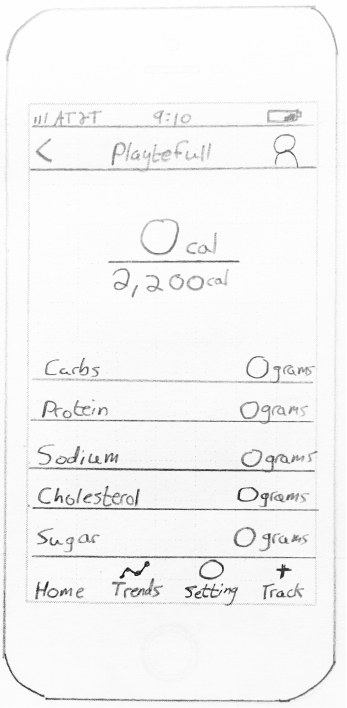 AT&T 9:10
< Playtefull
0 cal
2,200 cal
Carbs 0 grams
Protein 0 grams
Sodium 0 grams
Cholesterol 0 grams
Sugar 0 grams
Home Trends Setting + Track